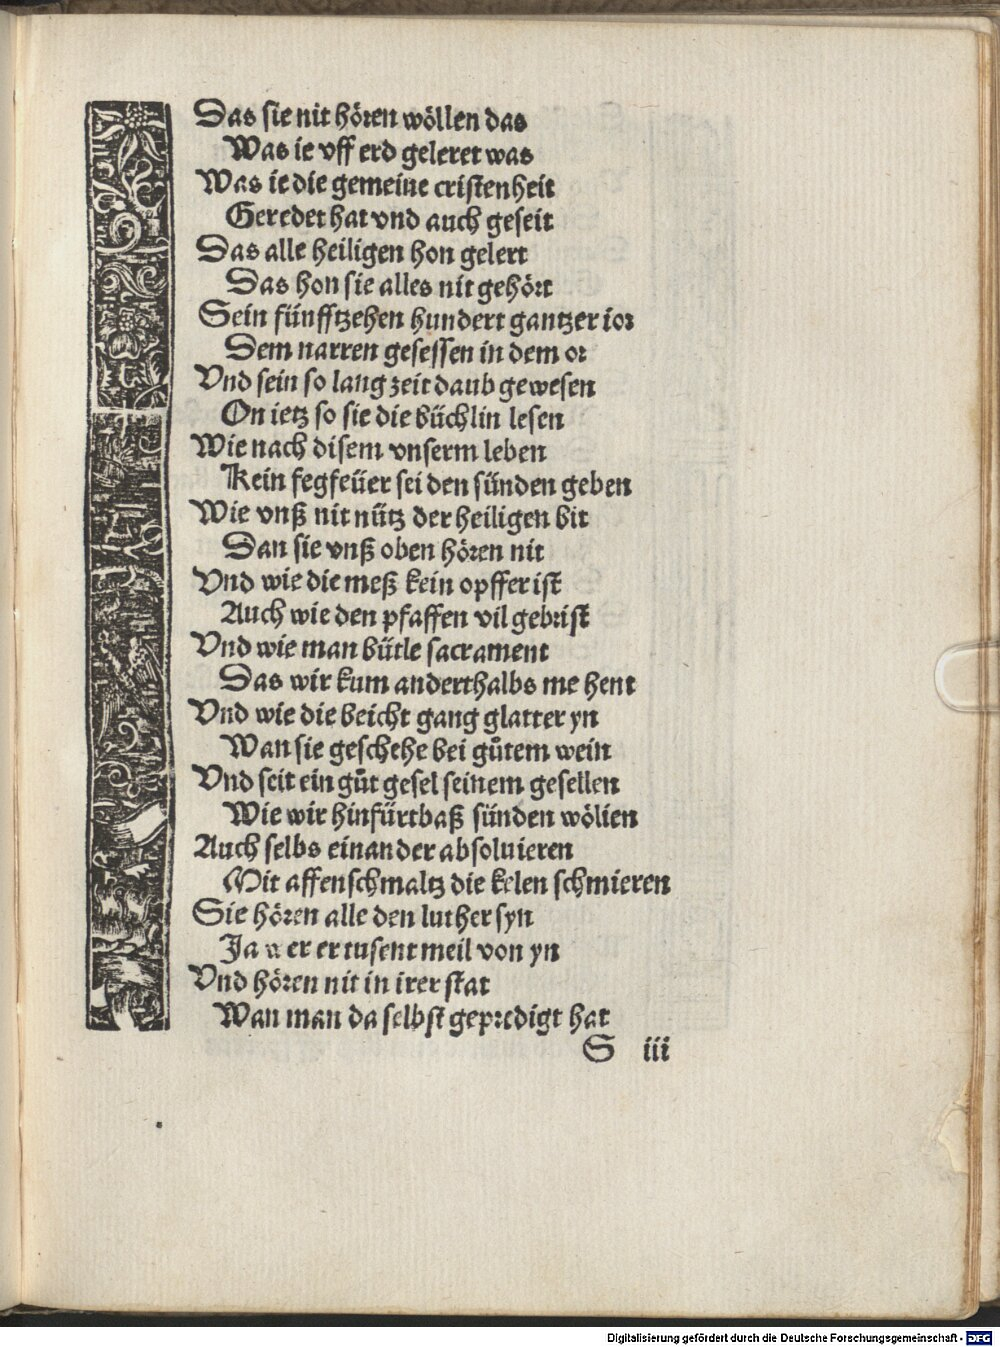 Das sie nit hören wöllen das
Was ie vff erd geleret was
Was ie die gemeine cristenheit
Geredet hat vnd auch geseit
Das alle heiligen hon gelert
Das hon sie alles nit gehört
Sein fünfftzehen hundert gantzer ior
Dem narren gesessen in dem or
Vnd sein so lang zeit daub gewesen
On ietz so sie die büchlin lesen
Wie nach disem vnserm leben
Kein fegfeüer sei den sünden geben
Wie vnß nit nütz der heiligen bit
Dan sie vnß oben hören nit
Vnd wie die meß kein opffer ist
Auch wie den pfaffen vil gebrist
Vnd wie man bütle sacrament
Das wir kum anderthalbs me hent
Vnd wie die beicht gang glatter yn
Wan sie geschehe bei gůtem wein
Vnd seit ein gůt gesel seinem gesellen
Wie wir hinfürtbaß sünden wöllen
Auch selbs einander absoluieren
Mit affenschmaltz die kelen schmieren
Sie hören alle den luther syn
Ja wer er tusent meil von yn
Vnd hören nit in irer stat
Wan man da selbst geprediget hat
S iii
Digitalisierung gefördert durch die Deutsche Forschungsgemeinschaft - DFG